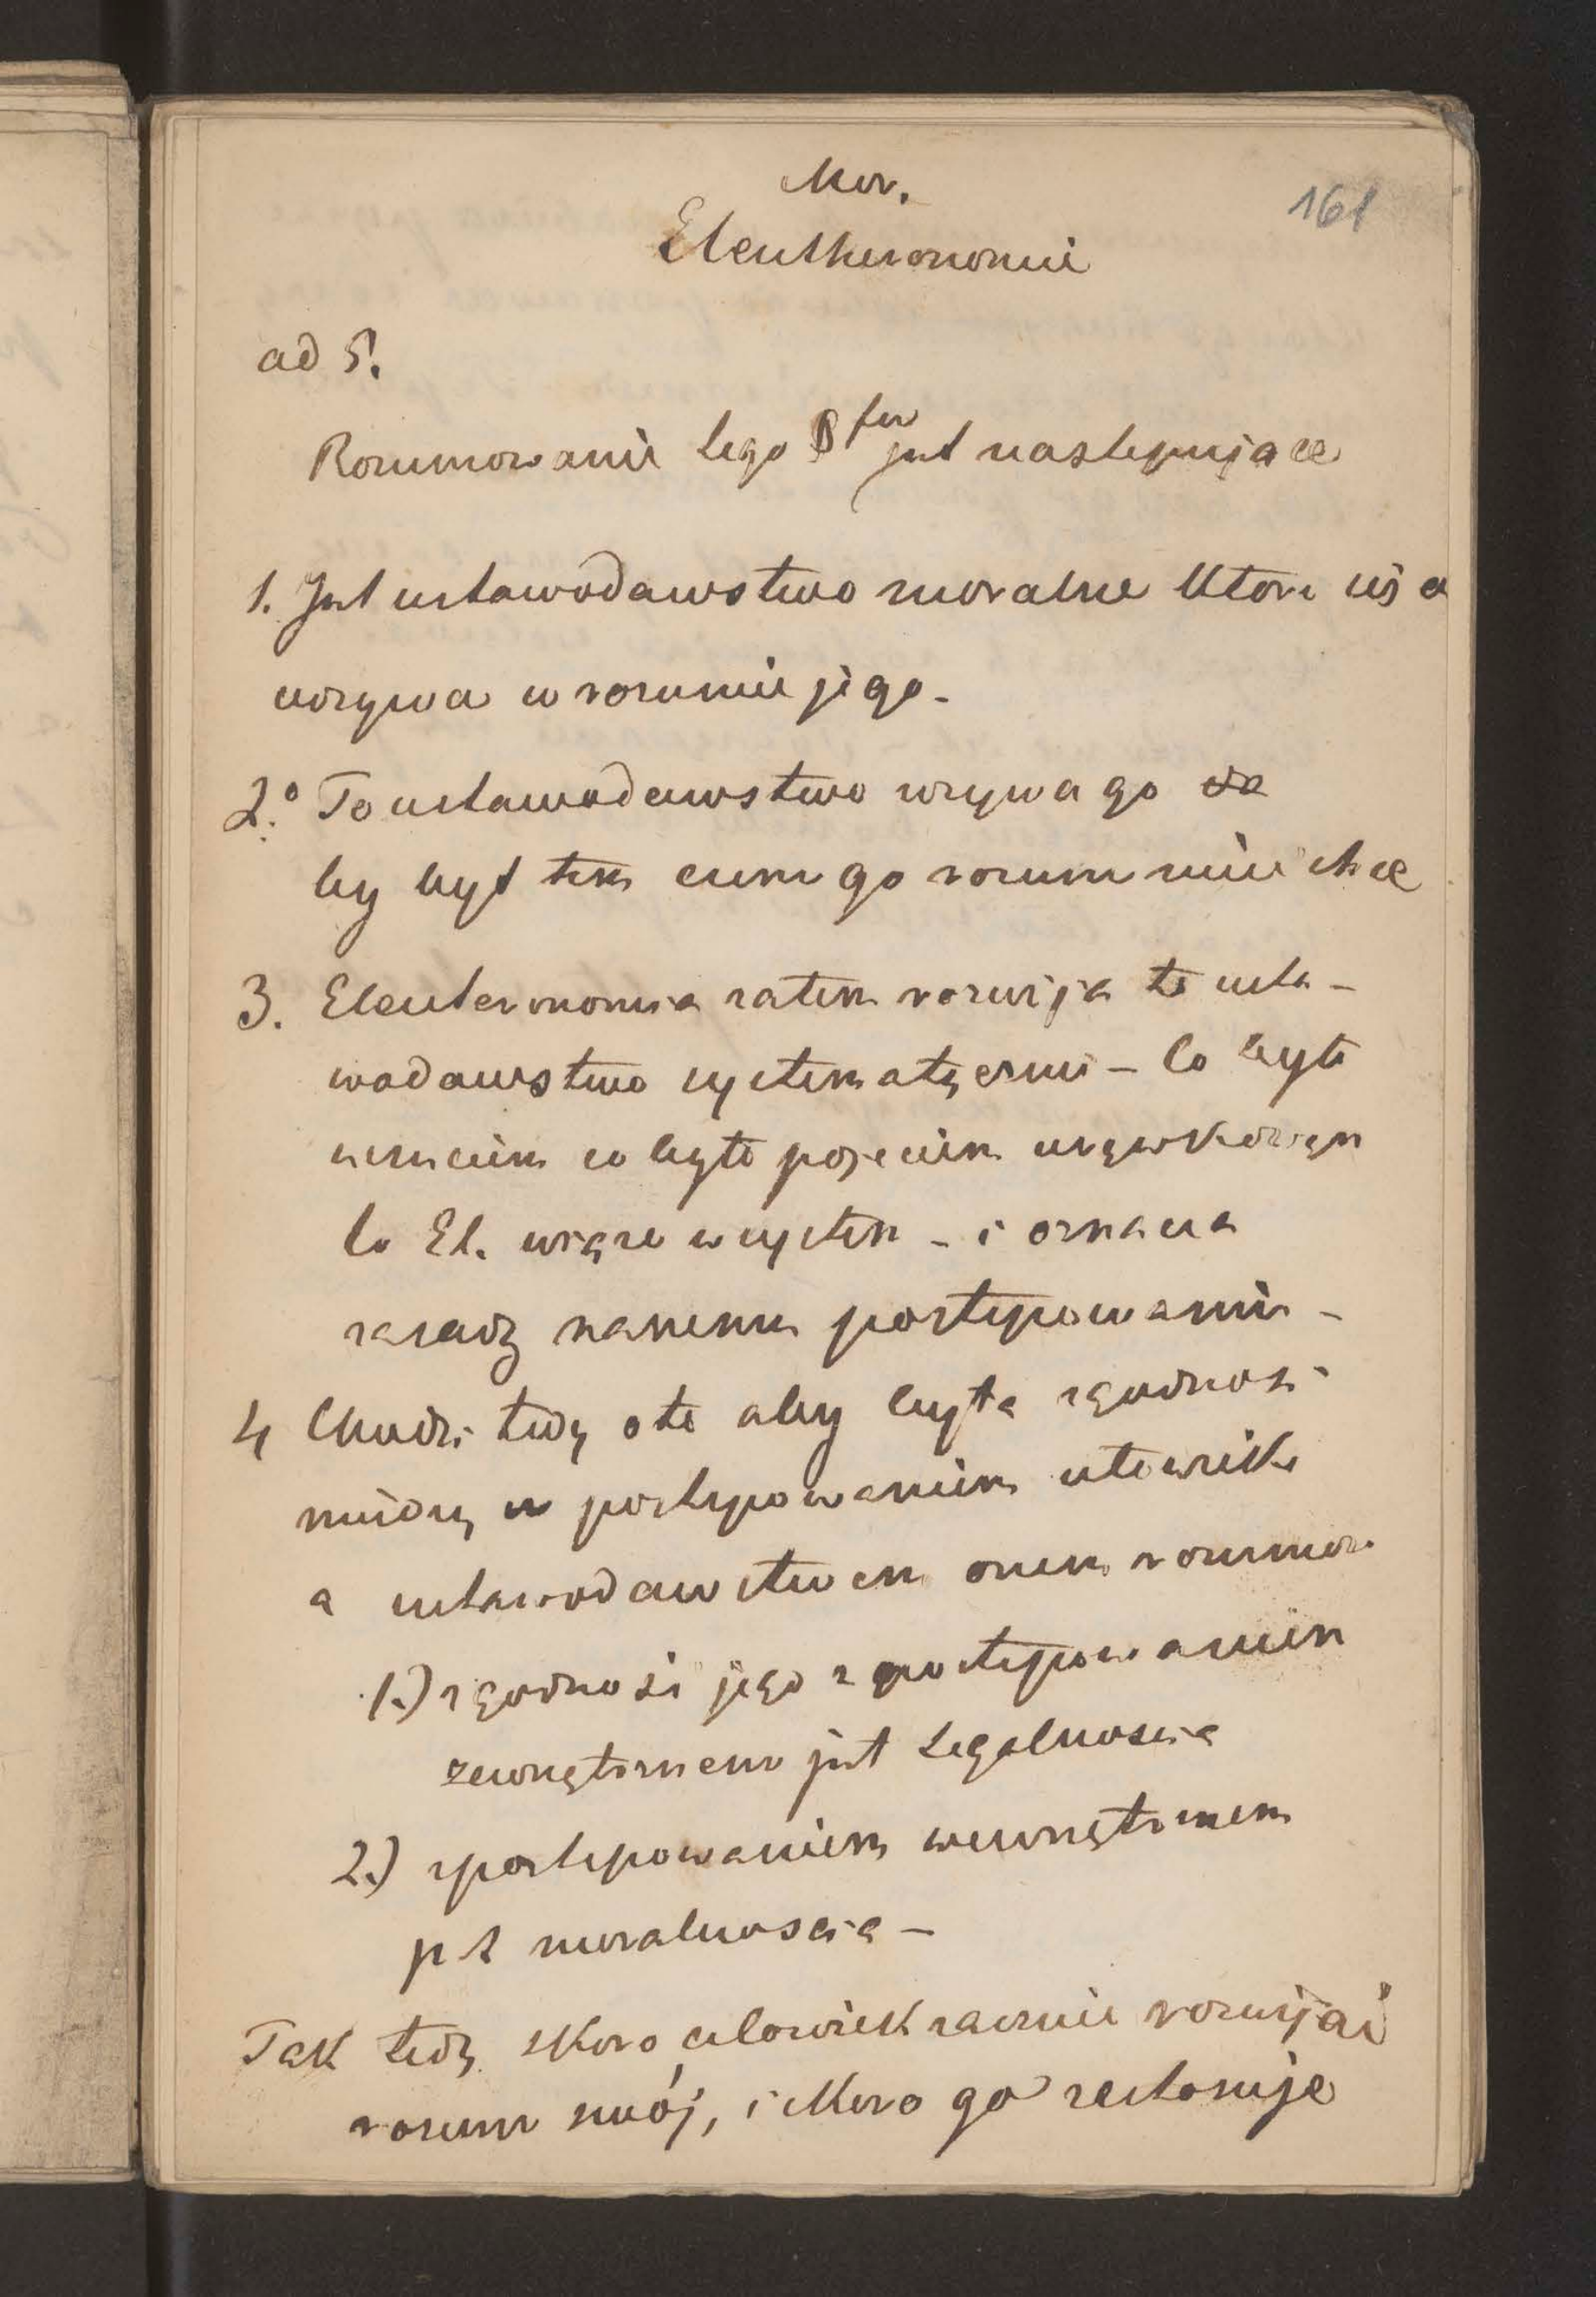 Mor.
161
Eleutheronomii
ad 5.
Rozumowanie tego §fu jest następujące
1. Jest ustawodawstwo moralne które się o
wzywa w rozumie jego -
2.° To ustawodawstwo wzywa go
by był tem czem go rozum mieć chce
3. Eleuteronomia zatem rozwija to usta-
wodawstwo systematycznie - Co było
uczuciem co było pojęciem urywkowym
to El. wiąże w system - i oznacza
zasadę naszemu postępowaniu -
4 Chodzi tedy o to aby była zgodność
między postępowaniem człowieka
a ustawodawstwem onem rozumow.
1.) zgodność jego z postępowaniem
zewnętrznem jest Legalnością
2.) z postępowaniem wewnętrznem
jest moralnością -
Tak tedy skoro człowiek zacznie rozwijać
rozum swój, i skoro go zastosuje